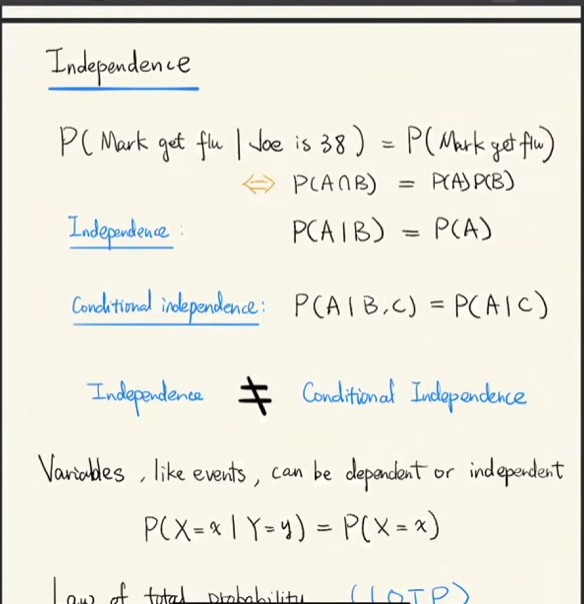 Independence
P( Mark get flu | Joe is 38 ) = P( Mark get flu)
⇔ P(A∩B) = P(A)P(B)
Independence : P(A|B) = P(A)
Conditional independence: P(A|B,C) = P(A|C)
Independence ≠ Conditional Independence
Variables , like events , can be dependent or independent
P(X=x | Y=y) = P(X=x)
Law of total probability (LOTP)